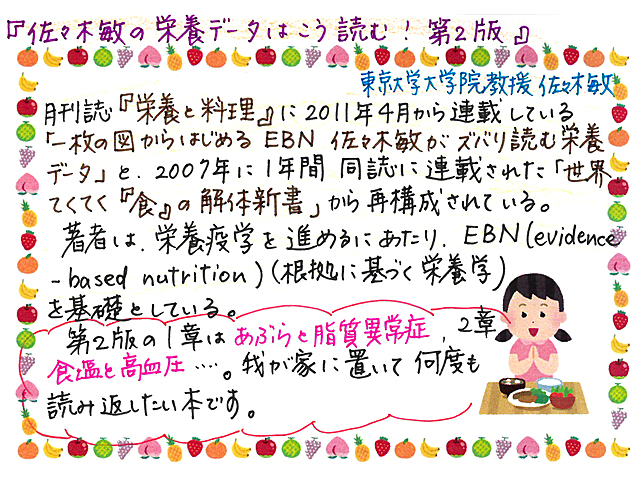 『佐々木敏の栄養データはこう読む！第2版』
東京大学大学院教授 佐々木敏
月刊誌『栄養と料理』に2011年4月から連載している
「一枚の図からはじめるEBN 佐々木敏がズバリ読む栄養
データ」と、2007年に1年間 同誌に連載された「世界
てくてく『食』の解体新書」から再構成されている。
著者は、栄養疫学を進めるにあたり、EBN(evidence
-based nutrition)(根拠に基づく栄養学)
を基礎としている。
第2版の1章はあぶらと脂質異常症、2章
食塩と高血圧……。我が家に置いて何度も
読み返したい本です。